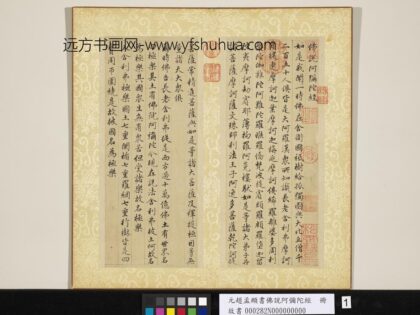 远方书画网 www.yfshuhua.com
佛說阿彌陀經
如是我聞一時佛在舍衛國祇樹給孤獨園與大比丘僧千
二百五十人俱皆是大阿羅漢眾所知識長老舍利弗摩訶
目犍連摩訶迦葉摩訶迦旃延摩訶俱絺羅離婆多周利
槃陀伽難陀阿難陀羅睺羅憍梵波提賓頭盧頗羅墮迦留
陀夷摩訶劫賓那薄拘羅阿㝹樓馱如是等諸大弟子并
諸菩薩摩訶薩文殊師利法王子阿逸多菩薩乾陀訶提
菩薩常精進菩薩與如是等諸大菩薩及釋提桓因等無
量諸天大眾俱
爾時佛告長老舍利弗從是西方過十萬億佛土有世界名
曰極樂其土有佛號阿彌陀今現在說法舍利弗彼土何故名
為極樂其國眾生無有眾苦但受諸樂故名極樂
又舍利弗極樂國土七重欄楯七重羅網七重行樹皆是四
寶周帀圍繞是故彼國名為極樂
元趙孟頫書佛說阿彌陀經 冊
故書 000282N000000000
1